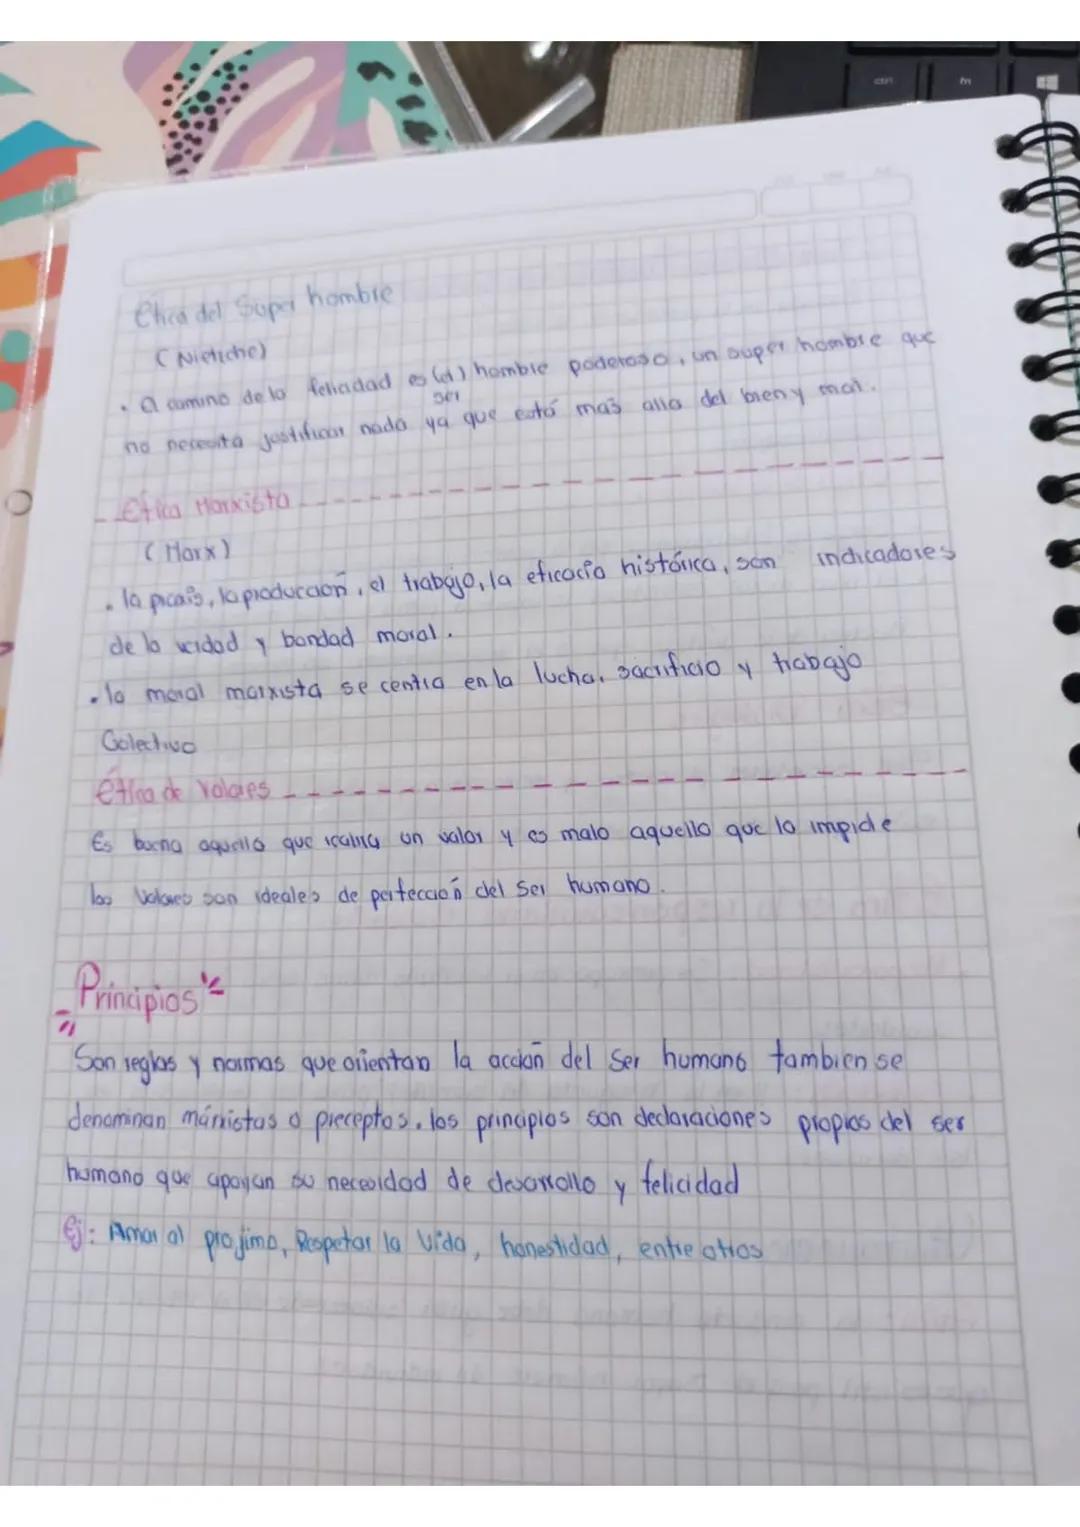 Etica del Super hombre
(Nietiche)
• El camino de la felicidad es (el) hombre poderoso, un super hombre que
ser
no necesita justificar nada ya que está más alla del bien y mal.
Etica Marxista
(Marx)
• la praxis, la producción, el trabajo, la eficacia histórica, son indicadores
de la verdad y bondad moral.
• la moral marxista se centra en la lucha, sacrificio y trabajo
Colectivo
ética de Valores
Es bueno aquello que realiza un valor y es malo aquello que lo impide
los Valores son ideales de perfección del ser humano.
Principios
Son reglas y normas que orientan la acción del Ser humano tambien se
denominan o preceptos. los principios son declaraciones propias del ser
humano que apoyan su necesidad de desarrollo y felicidad
Ej: Amar al projimo, Respetar la Vida, honestidad, entre otros
ctrl
fn